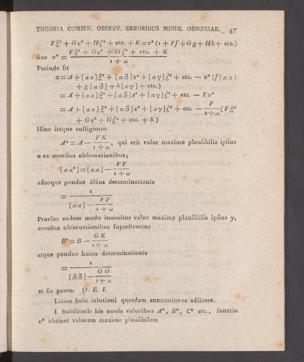 THEORIA COMBIN. OBSERV. ERRORIBUS MINIM. OBNOXIAE. 47
Fξ* + Gη* + Hζ* + etc. + K = v* (1 + Ff + Gg + Hh + etc.)
sive v* = (Fξ* + Gη* + Hζ* + etc. + K) / (1 + ω)
Perinde fit
x = A + [αα]ξ* + [αβ]η* + [αγ]ζ* + etc. — v* (f[αα]
+ g[αβ] + h[αγ] + etc.)
= A + [αα]ξ* + [αβ]η* + [αγ]ζ* + etc. — Fv*
= A + [αα]ξ* + [αβ]η* + [αγ]ζ* + etc. — F/(1 + ω) (Fξ*
+ Gη* + Hζ* + etc. + K)
Hinc itaque colligimus
A* = A — FK/(1 + ω), qui erit valor maxime plausibilis ipsius
x ex omnibus observationibus;
[αα*] = [αα] — FF/(1 + ω)
adeoque pondus istius determinationis
= 1 / ([αα] — FF/(1 + ω))
Prorsus eodem modo invenitur valor maxime plausibilis ipsius y,
omnibus observationibus superstructus
B* = B — GK/(1 + ω)
atque pondus huius determinationis
= 1 / ([ββ] — GG/(1 + ω))
et sic porro. Q. E. I.
Liceat huic solutioni quasdam annotationes adiicere.
I. Substitutis his novis valoribus A*, B*, C* etc., functio
v* obtinet valorem maxime plausibilem